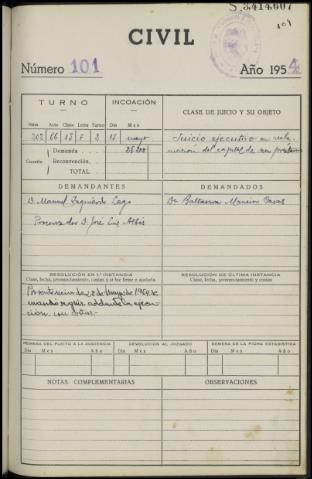 S.3414.607
101
CIVIL
Número 101 Año 1954
TURNO INCOACIÓN CLASE DE JUICIO Y SU OBJETO
Núm. Acto Clase Letra Día Mes
302 66 15 F 2 18 mayo Juicio ejecutivo en recla-
Demanda 25.200 mación del capital de un préstamo
Cuantía Reconvención.
TOTAL
DEMANDANTES DEMANDADOS
D. Manuel Izquierdo Lago
Procurador D. José Luis
RESOLUCIÓN EN 1.ª INSTANCIA RESOLUCIÓN DE ÚLTIMA INSTANCIA
Clase, fecha, pronunciamiento, costas y si fué firme o apelada Clase, fecha, pronunciamiento y costas
Por sentencia de 2 de mayo de 1954 se
mandó seguir adelante la ejecu-
ción
PRIMERA DEL PLEITO A LA AUDIENCIA DEVOLUCIÓN AL JUZGADO REMESA DE LA FICHA ESTADÍSTICA
Día Mes Año Día Mes Año Día Mes Año
NOTAS COMPLEMENTARIAS OBSERVACIONES